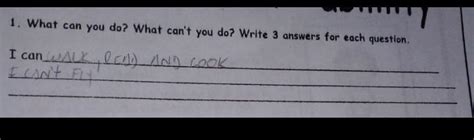 1. What can you do? What can't you do? Write 3 answers for each question.
I can WALK, READ AND COOK
I CAN'T FLY